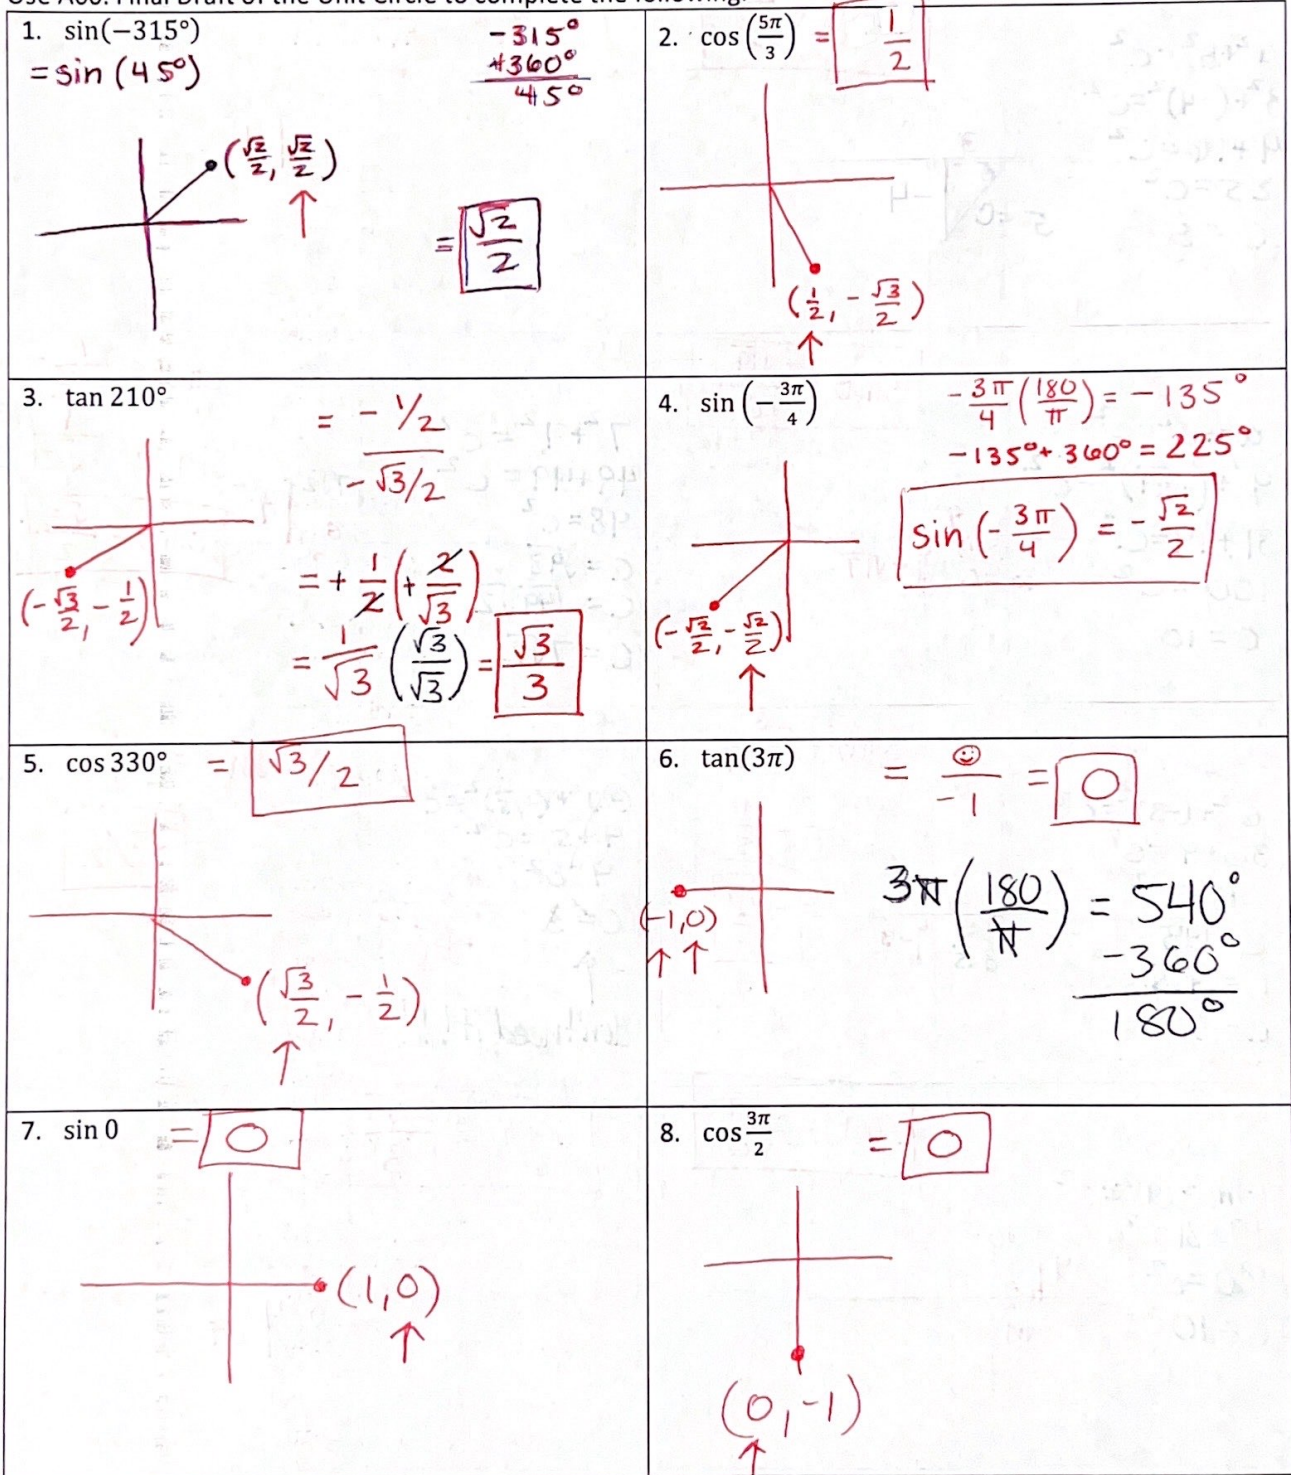 1. sin(−315°)
= sin (45°)
-315°
+360°
45°
(√2/2, √2/2)
↑
= √2/2
2. cos(5π/3) = 1/2
(1/2, -√3/2)
↑
3. tan 210°
= -1/2 / -√3/2
(-√3/2, -1/2)
= + 1/2 (+ 2/√3)
= 1/√3 (√3/√3) = √3/3
4. sin(−3π/4)
-3π/4 (180/π) = -135°
-135° + 360° = 225°
sin (-3π/4) = -√2/2
(-√2/2, -√2/2)
↑
5. cos 330° = √3/2
(√3/2, -1/2)
↑
6. tan(3π) = ☺/-1 = 0
(-1,0)
↑ ↑
3π (180/π) = 540°
-360°
180°
7. sin 0 = 0
(1,0)
↑
8. cos 3π/2 = 0
(0,-1)
↑